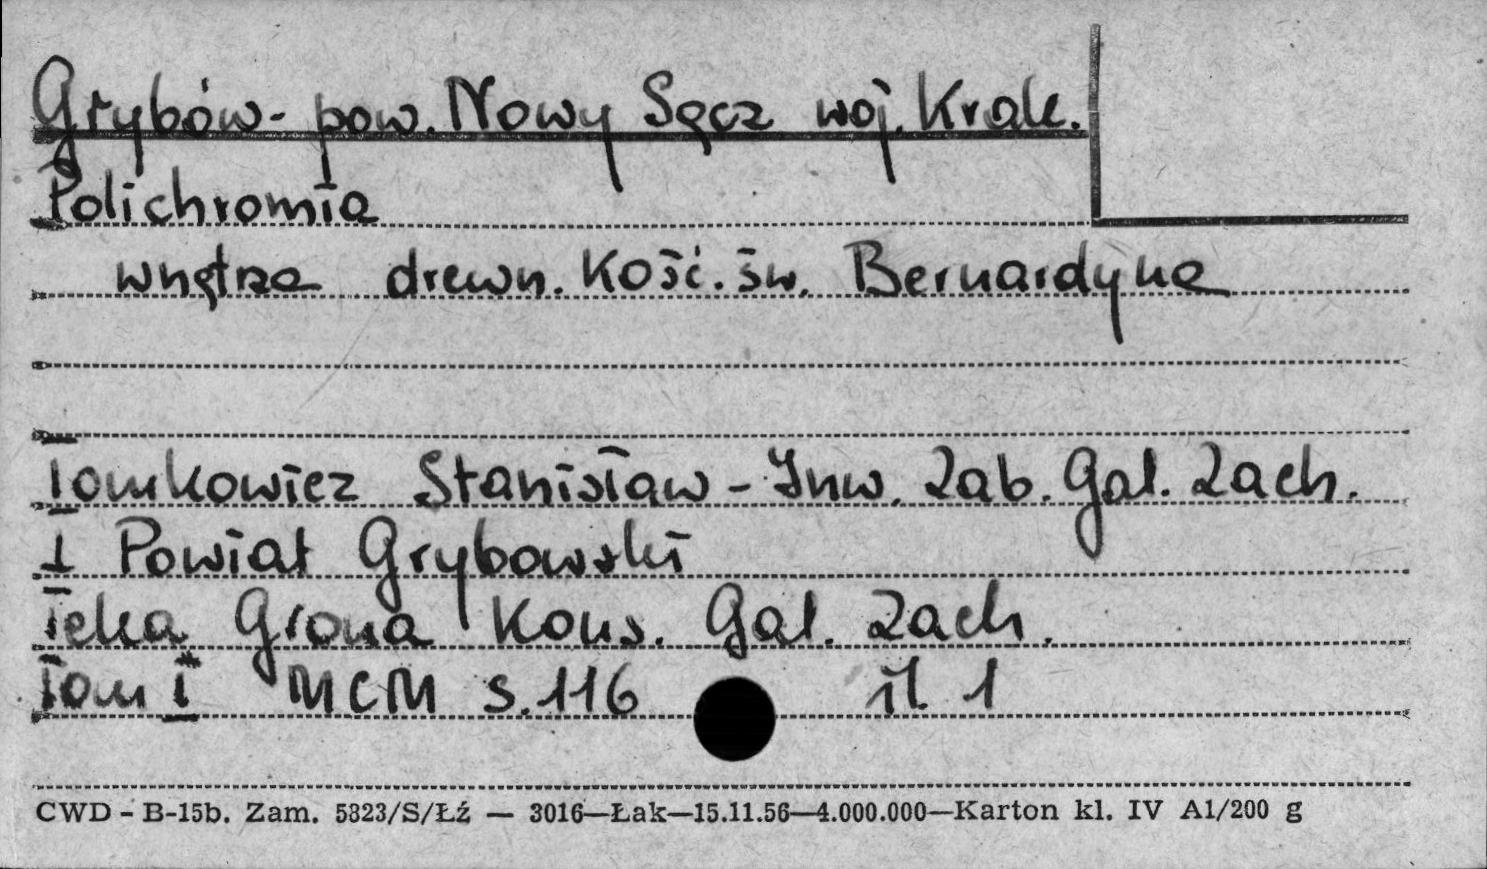 Grybów - pow. Nowy Sącz woj. Krak.
Polichromia
wnętrza drewn. Kość. św. Bernardyna
Tomkowicz Stanisław - Inw. Zab. Gal. Zach.
I Powiat Grybowski
Teka Grona Kons. Gal. Zach.
Tom I MCM s. 116 il. 1
CWD - B-15b. Zam. 5823/S/Łź — 3016—Łak—15.11.56—4.000.000—Karton kl. IV A1/200 g